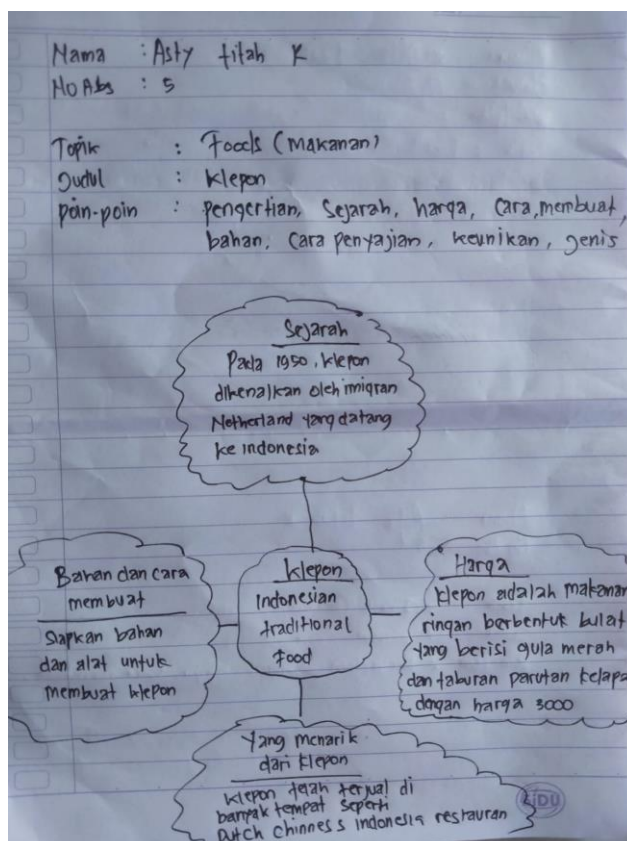 Nama : Asty titah K
No Abs : 5
Topik : Foods (Makanan)
Judul : Klepon
poin-poin : pengertian, Sejarah, harga, Cara, membuat,
bahan, Cara penyajian, keunikan, jenis
Sejarah
Pada 1950, klepon
dikenalkan oleh imigran
Netherland yang datang
ke indonesia
Bahan dan cara
membuat
Siapkan bahan
dan alat untuk
membuat klepon
Klepon
Indonesian
traditional
Food
Harga
klepon adalah makanan
ringan berbentuk bulat
yang berisi gula merah
dan taburan parutan kelapa
dengan harga 3000
Yang menarik
dari klepon
klepon telah terjual di
banyak tempat seperti
Dutch chinness indonesia restauran
SiDU